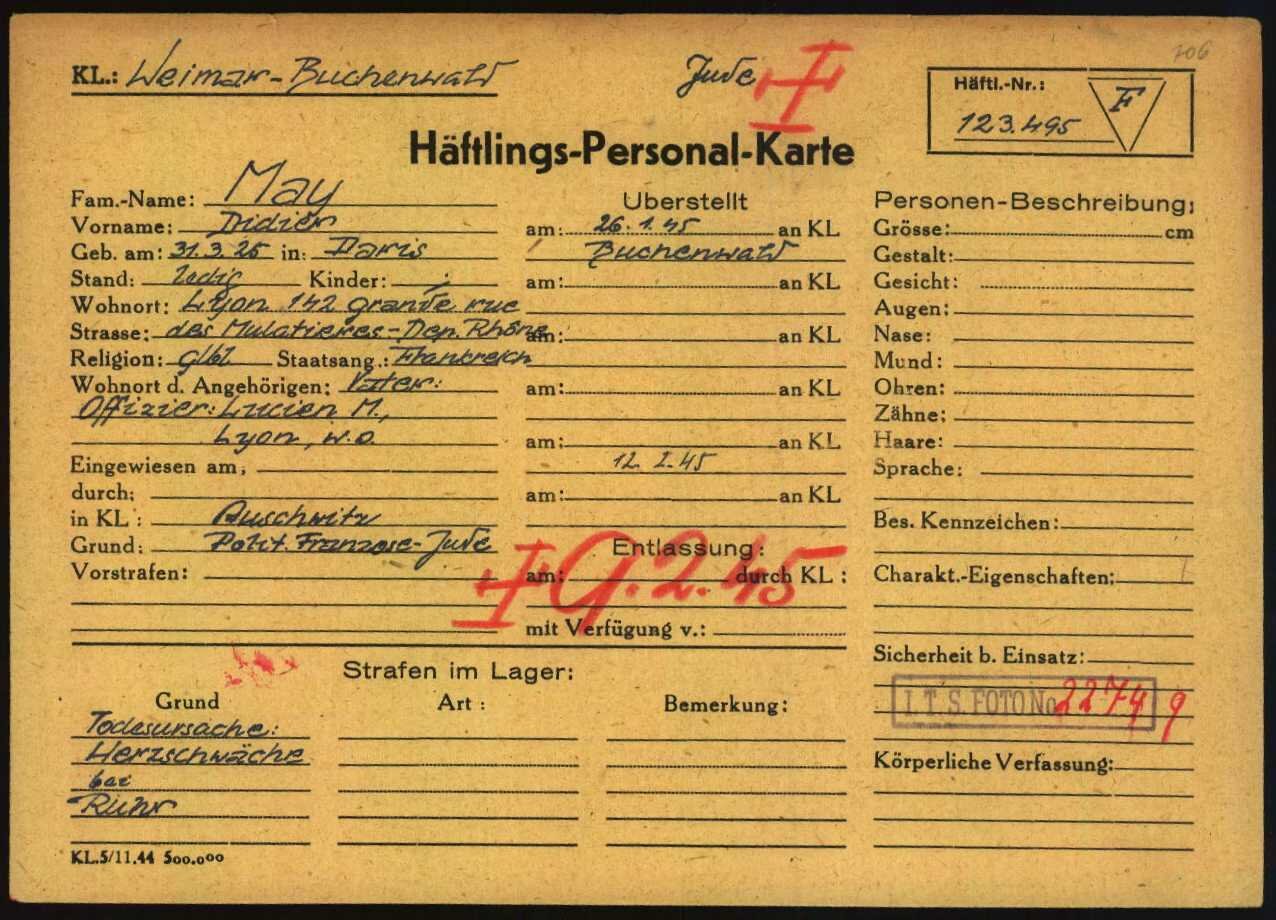 106
KL.: Weimar-Buchenwald
Jude
Häftl.-Nr.:
123.495
F
Häftlings-Personal-Karte
Fam.-Name: May
Vorname: Didier
Geb. am: 31.3.26 in: Paris
Stand: ledig Kinder:
Wohnort: Lyon 142 grande rue
Strasse: des Mulatieres-Dep. Rhône
Religion: Staatsang.: Frankreich
Wohnort d. Angehörigen: Vater:
Offizier: Lucien M.,
Lyon, w.o.
Eingewiesen am:
durch:
in KL: Auschwitz
Grund: Polit. Franzose-Jude
Vorstrafen:
Überstellt
am: 26.1.45 an KL
Buchenwald
am: an KL
am: an KL
am: an KL
am: an KL
12. 2.45
am: an KL
Entlassung:
am: durch KL:
9.2.45
mit Verfügung v.:
Personen-Beschreibung:
Grösse: cm
Gestalt:
Gesicht:
Augen:
Nase:
Mund:
Ohren:
Zähne:
Haare:
Sprache:
Bes. Kennzeichen:
Charakt.-Eigenschaften:
Sicherheit b. Einsatz:
I.T.S. FOTO No 22749
Körperliche Verfassung:
Strafen im Lager:
Grund Art: Bemerkung:
Todesursache:
Herzschwäche
bei
Ruhr
KL.5/11.44 500.000